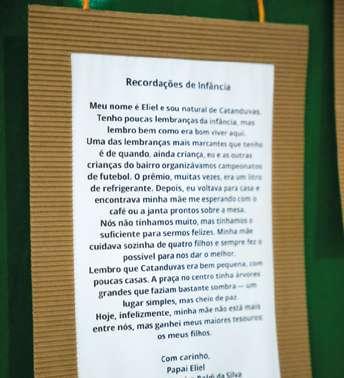 Recordações de Infância
Meu nome é Eliel e sou natural de Catanduvas.
Tenho poucas lembranças da infância, mas
lembro bem como era bom viver aqui.
Uma das lembranças mais marcantes que tenho
é de quando, ainda criança, eu e as outras
crianças do bairro organizávamos campeonatos
de futebol. O prêmio, muitas vezes, era um litro
de refrigerante. Depois, eu voltava para casa e
encontrava minha mãe me esperando com o
café ou a janta prontos sobre a mesa.
Nós não tínhamos muito, mas tínhamos o
suficiente para sermos felizes. Minha mãe
cuidava sozinha de quatro filhos e sempre fez o
possível para nos dar o melhor.
Lembro que Catanduvas era bem pequena, com
poucas casas. A praça no centro tinha árvores
grandes que faziam bastante sombra — um
lugar simples, mas cheio de paz.
Hoje, infelizmente, minha mãe não está mais
entre nós, mas ganhei meus maiores tesouros:
os meus filhos.
Com carinho,
Papai Eliel
da Silva